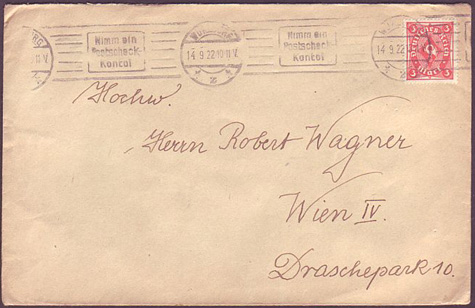 Nimm ein
Postscheck-
Konto!
14.9.22.10-11V.
Nimm ein
Postscheck-
Konto!
14.9.22
Hochw.
Herrn Robert Wagner
Wien IV.
Draschepark 10.